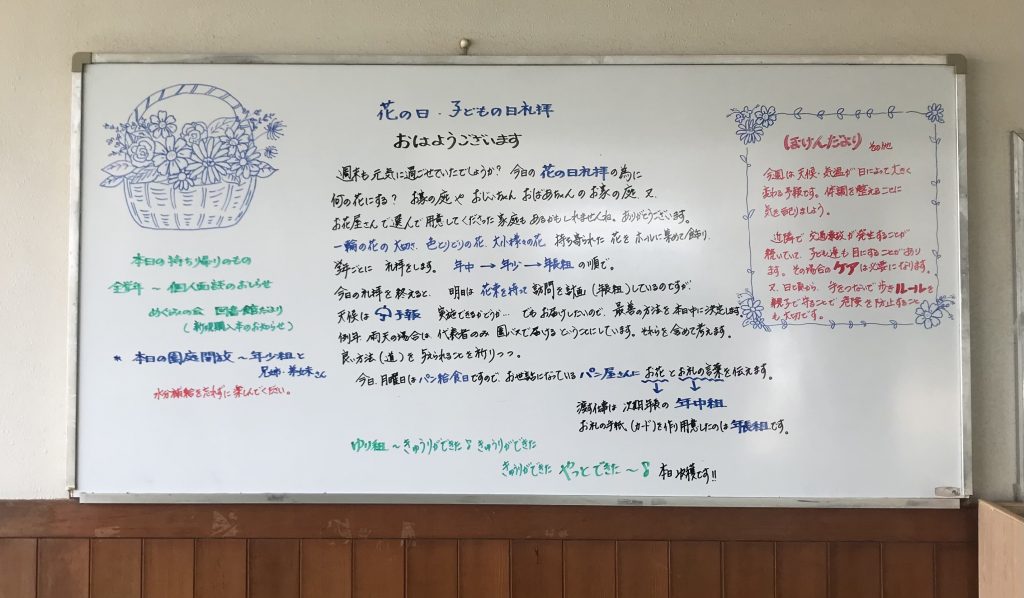 花の日・子どもの日礼拝
おはようございます
週末も元気に過ごせていたでしょうか? 今日の 花の日礼拝の為に
何の花にする? お家の庭や おじいちゃん おばあちゃんのお家の庭、又、
お花屋さんで選んで用意してくださった家庭もあるかもしれませんね。ありがとうございます。
一輪の花の大切さ、色とりどりの花、大小様々の花、持ち寄られた花をホールに集めて飾り、
学年ごとに 礼拝をします。 年中→年少→年長組の順で。
今日の礼拝を終えると、 明日は 花束を持って訪問を計画(年長組)しているのですが、
天候は 予報 実施できるかどうか… でもお届けしたいので、最善の方法を本日中に決定します
例年、雨天の場合は 代表者のみ 園バスで届ける ということにしています。それらを含めて考えます。
良い方法(道)を 与えられることを祈りつつ。
今日、月曜日は パン給食日ですので、お世話になっている パン屋さんに お花と お礼の言葉を伝えます。
渡す仕事は 次期年長の 年中組
お礼の手紙(カード)を作り用意したのは 年長組です。
ゆり組〜きゅうりができた♪きゅうりができた
きゅうりができた やっとできた〜♪ 本日収穫です!!
本日の持ち帰りのもの
全学年〜個人面談のおしらせ
めぐみの会 図書館だより
(新規購入本のお知らせ)
* 本日の園庭開放〜年少組と
兄姉・弟妹さん
水分補給を忘れずに楽しんでください。
ほけんだより その他
今週は天候・気温が日によって大きく
変わる予報です。体調を整えることに
気を配りましょう。
近隣で交通事故が発生することが
続いていて、子ども達も目にすることがあり
ます。その場合のケアは必要になります。
又、日頃から、手をつないで歩きルールを
親子で守ることで危険を防止すること
も大切です。